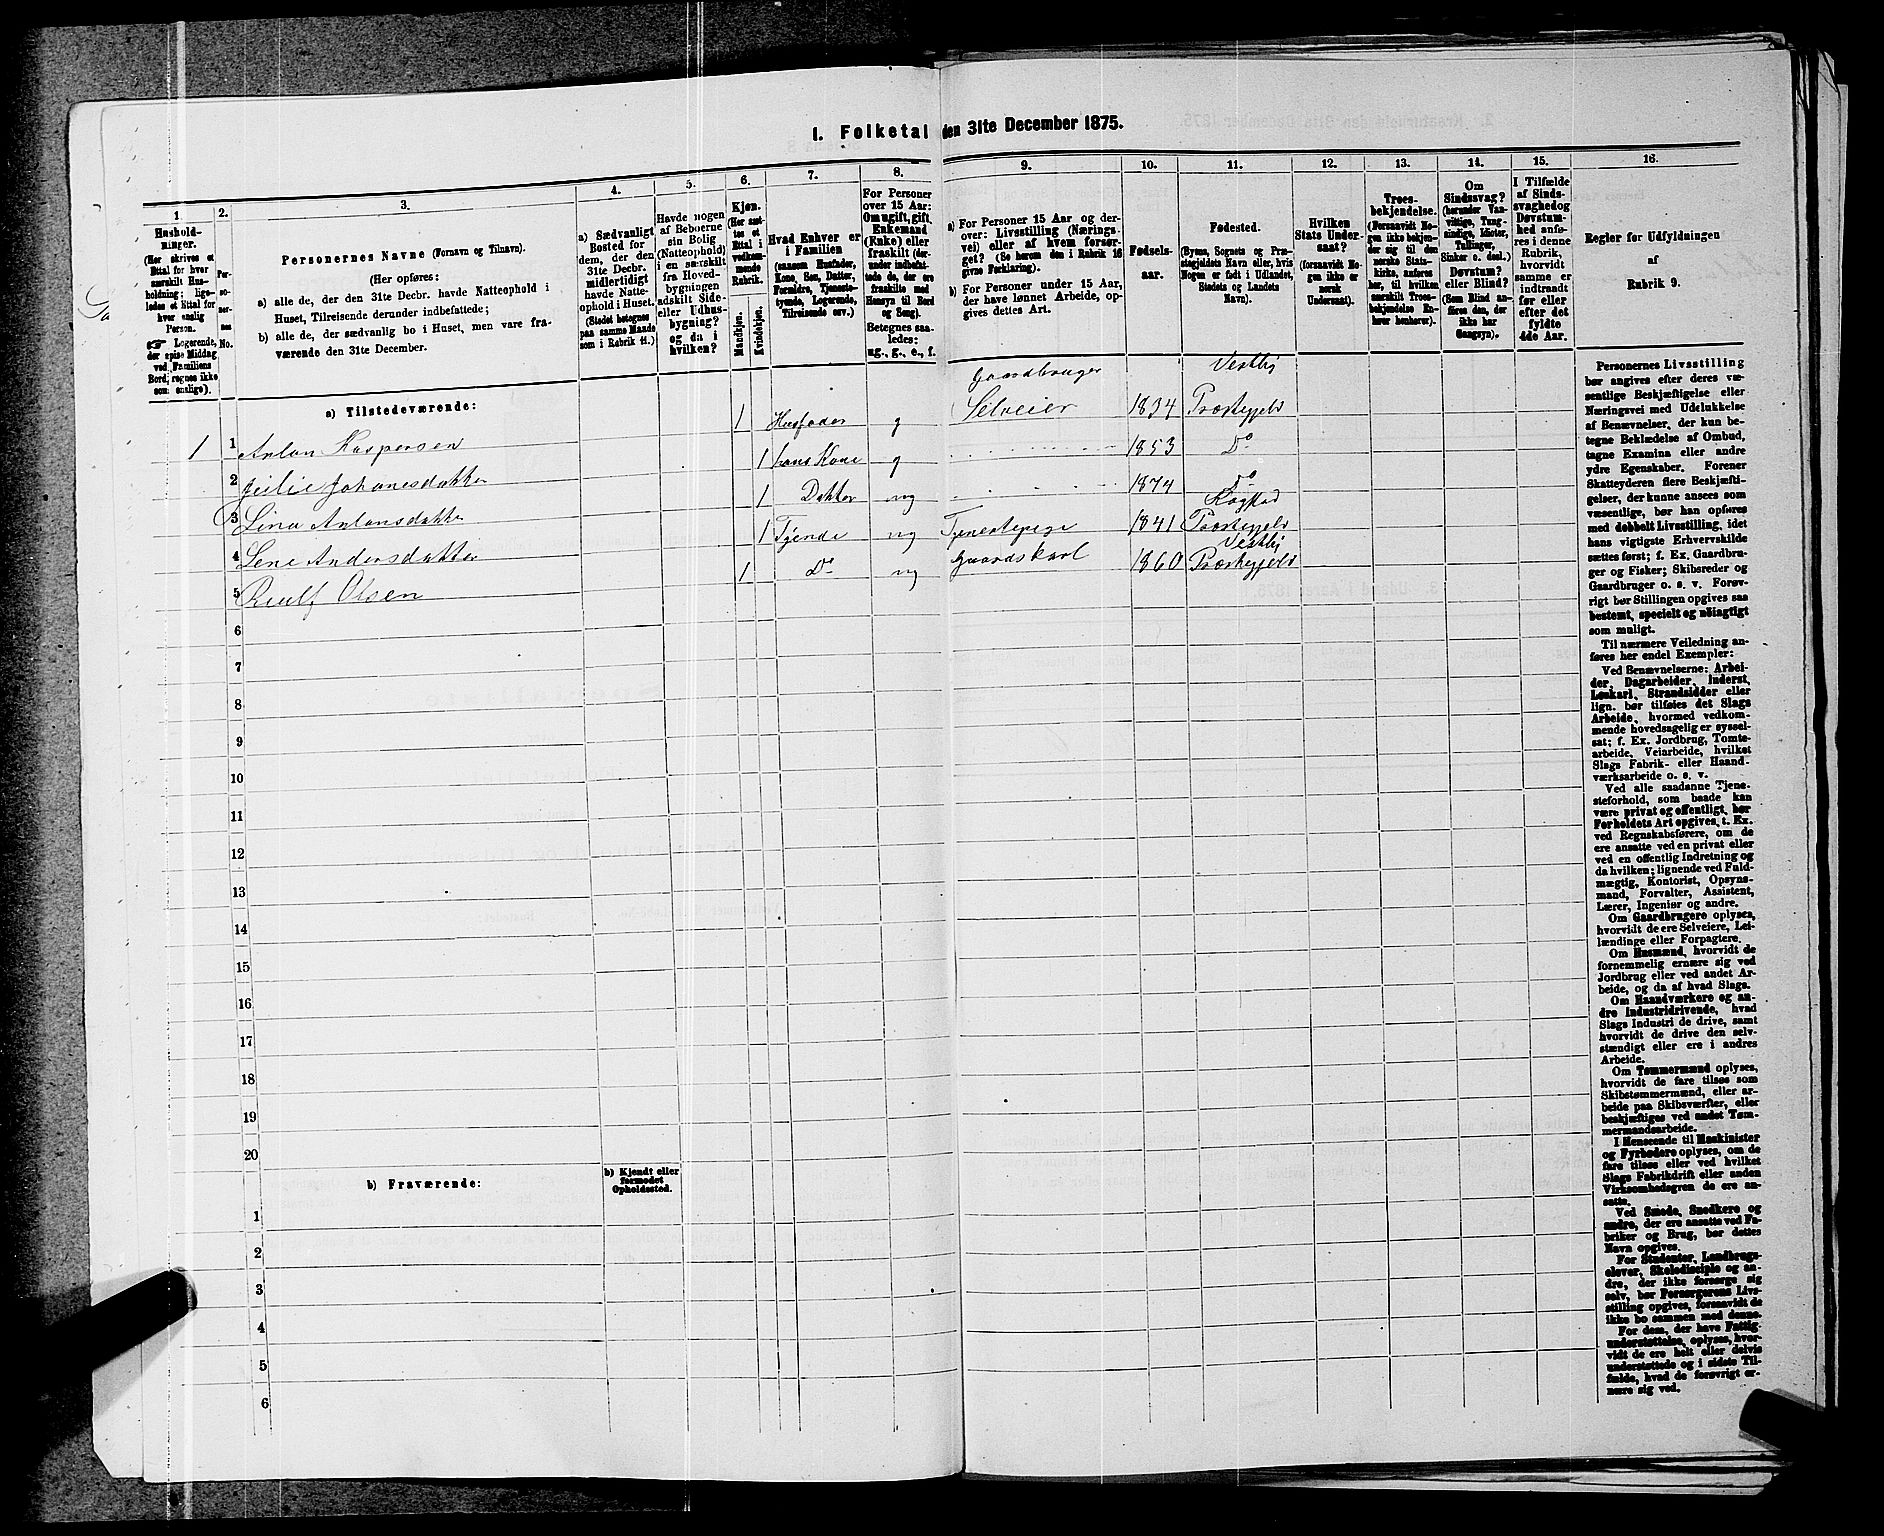 1. Folketal den 31te December 1875.
1.
Hushold-
ninger.
(Her skrives et
Ettal for hver
særskilt Hus-
holdning; lige-
ledes et Ettal for
hver enslig
Person.
Logerende,
der spise Middag
ved Familiens
Bord, regnes ikke
som enslige).
2.
Per-
so-
ner-
nes
No.
3.
Personernes Navne (Fornavn og Tilnavn).
(Her opføres:
a) alle de, der den 31te Decbr. havde Natteophold i
Huset, Tilreisende derunder indbefattede;
b) alle de, der sædvanlig bo i Huset, men vare fra-
værende den 31te December.
4.
a) Sædvanligt
Bosted for
dem, der den
31te Decbr.
midlertidigt
havde Natte-
ophold i Huset.
(Stedet betegnes
paa samme Maade
som i Rubrik 11.)
5.
Havde nogen
af Beboerne
sin Bolig
(Natteophold)
i en særskilt
fra Hoved-
bygningen
adskilt Side-
eller Udhus-
bygning?
og da i
hvilken?
6.
Kjøn.
(Her sæt-
tes et
Ettal i
vedkom-
mende
Rubrik.
Mandkjøn.
Kvindekjøn.
7.
Hvad Enhver er
i Familien
(saasom Husfader,
Kone, Søn, Datter,
Forældre, Tjeneste-
tyende, Logerende,
Tilreisende osv.)
8.
For Personer
over 15 Aar:
Om ugift, gift,
Enkemand
(Enke) eller
fraskilt (der-
under indbefat-
tede de, der ere
fraskilte med
Hensyn til Bord
og Seng).
Betegnes saa-
ledes:
ug., g., e., f.
9.
a) For Personer 15 Aar og der-
over: Livsstilling (Nærings-
vei) eller af hvem forsør-
get? (Se herom den i Rubrik 16
givne Forklaring).
b) For Personer under 15 Aar,
der have lønnet Arbeide, op-
gives dettes Art.
10.
Fødsels-
aar.
11.
Fødested.
(Byens, Sognets og Præ-
stegjeldets Navn eller, hvis
Nogen er født i Udlandet,
Stedets og Landets
Navn).
12.
Hvilken
Stats Under-
saat?
(forsaavidt No-
gen ikke er
norsk
Undersaat).
13.
Troes-
bekjendelse.
(Forsaavidt No-
gen ikke bekjen-
der sig til den
norske Stats-
kirke, anføres
her, til hvilken
særskilt Troes-
bekjendelse En-
hver henhører).
14.
Om
Sindssvag?
(herunder Van-
vittige, Tung-
sindige, Idioter,
Tullinger,
Sinker o. desl.)
Døvstum?
eller Blind?
(Som Blind an-
føres den, der
ikke har
Gangsyn).
15.
I Tilfælde
af Sinds-
svaghed og
Døvstum-
hed anfø-
res i denne
Rubrik,
hvorvidt
samme er
indtraadt
før eller
efter det
fyldte
4de Aar.
16.
Regler for Udfyldningen
af
Rubrik 9.
a) Tilstedeværende:
1 1 Anton Kaspersen 1 Husfader g Gaardbruger Selveier 1834 Vestby Præstegjeld
2 Jeilie Johanesdatter 1 hans Kone g 1853 Do
3 Lina Antonsdatter 1 Datter ug 1874 Do
4 Lene Andersdatter 1 Tjende ug Tjenestepige 1841 Kragstad Præstegjeld
5 Reulf Olsen 1 Do ug Gaardskarl 1860 Vestby Præstegjeld
6
7
8
9
10
11
12
13
14
15
16
17
18
19
20
b) Fraværende:
b) Kjendt eller
formodet
Opholdssted.
1
2
3
4
5
6
Personernes Livsstilling
bør angives efter deres væ-
sentlige Beskjæftigelse eller
Næringsvei med Udelukkelse
af Benævnelser, der kun be-
tegne Beklædelse af Ombud,
tagne Examina eller andre
ydre Egenskaber. Forener
Skatteyderen flere Beskjæfti-
gelser, der kunne ansees som
væsentlige, bør han opføres
med dobbelt Livsstilling, idet
hans vigtigste Erhvervskilde
sættes først; f. Ex. Gaardbru-
ger og Fisker; Skibsreder og
Gaardbruger o. s. v. Forøv-
rigt bør Stillingen opgives saa
bestemt, specielt og nøiagtigt
som muligt.
Til nærmere Veiledning an-
føres her endel Exempler:
Ved Benævnelserne: Arbei-
der, Dagarbeider, Inderst,
Løskarl, Strandsidder eller
lign. bør tilføies det Slags
Arbeide, hvormed vedkom-
mende hovedsagelig er syssel-
sat; f. Ex. Jordbrug, Tomte-
arbeide, Veiarbeide, hvilket
Slags Fabrik- eller Haand-
værksarbeide o. s. v.
Ved alle saadanne Tjene-
steforhold, som baade kan
være privat og offentligt, bør
Forholdets Art opgives, t. Ex.
ved Regnskabsførere, om de
ere ansatte ved en privat eller
ved en offentlig Indretning og
da hvilken; lignende ved Fuld-
mægtig, Kontorist, Opsyns-
mand, Forvalter, Assistent,
Lærer, Ingeniør og andre.
Om Gaardbrugere oplyses,
hvorvidt de ere Selveiere, Lei-
lændinge eller Forpagtere.
Om Husmænd, hvorvidt de
fornemmelig ernære sig ved
Jordbrug eller ved andet Ar-
beide, og da af hvad Slags.
Om Haandværkere og an-
dre Industridrivende, hvad
Slags Industri de drive, samt
hvorvidt de drive den selv-
stændigt eller ere i andres
Arbeide.
Om Tømmermænd oplyses,
hvorvidt de fare tilsøs som
Skibstømmermænd, eller ar-
beide paa Skibsværfter, eller
beskjæftiges ved andet Tøm-
mermandsarbeide.
I Henseende til Maskinister
og Fyrbødere oplyses, om de
fare tilsøs eller ved hvilket
Slags Fabrikdrift eller anden
Virksomhedsgren de ere an-
satte.
Ved Smede, Snedkere og
andre, der ere ansatte ved Fa-
briker og Brug, bør dettes
Navn opgives.
For Studenter, Landbrugs-
elever, Skoledisciple og an-
dre, der ikke forsørge sig
selv, bør Forsørgerens Livs-
stilling opgives, forsaavidt de
ikke bo sammen med denne.
For dem, der have Fattig-
understøttelse, oplyses, hvor-
vidt de ere helt eller delvis
understøttede og i sidste Til-
fælde, hvad de forøvrigt er-
nære sig ved.